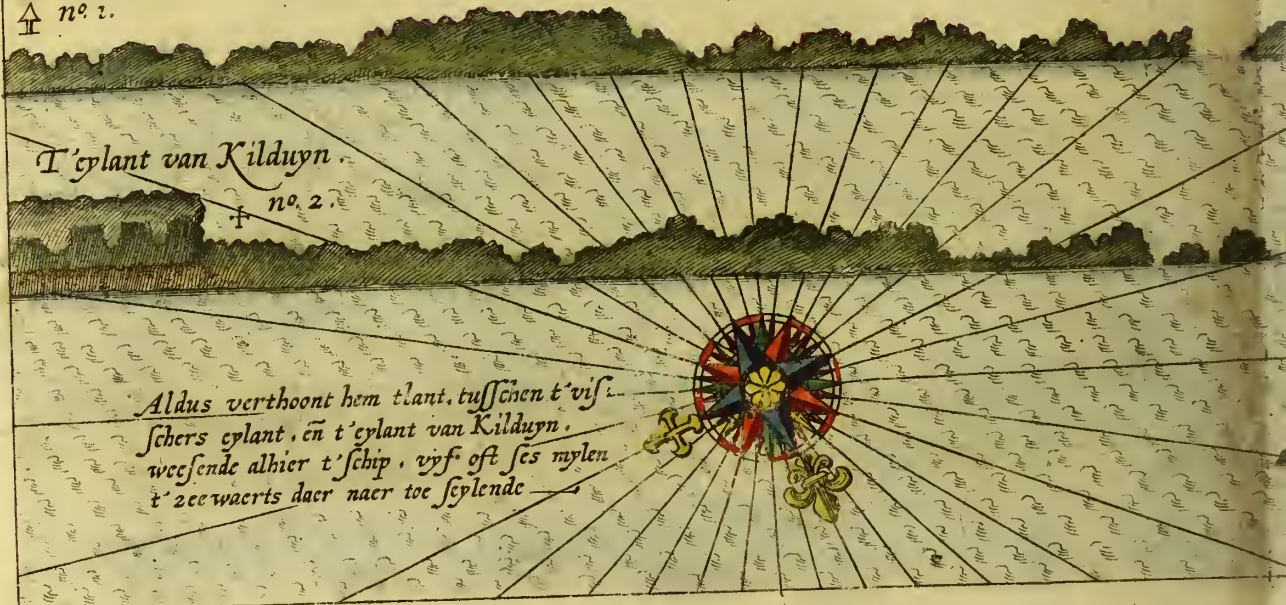 nº. 1.
T'eylant van Kilduyn.
nº. 2.
Aldus verthoont hem tlant, tusschen t'vis-
schers eylant, en̄ t'eylant van Kilduyn.
weesende alhier t'schip, vyf oft ses mylen
t'zeewaerts daer naer toe seylende